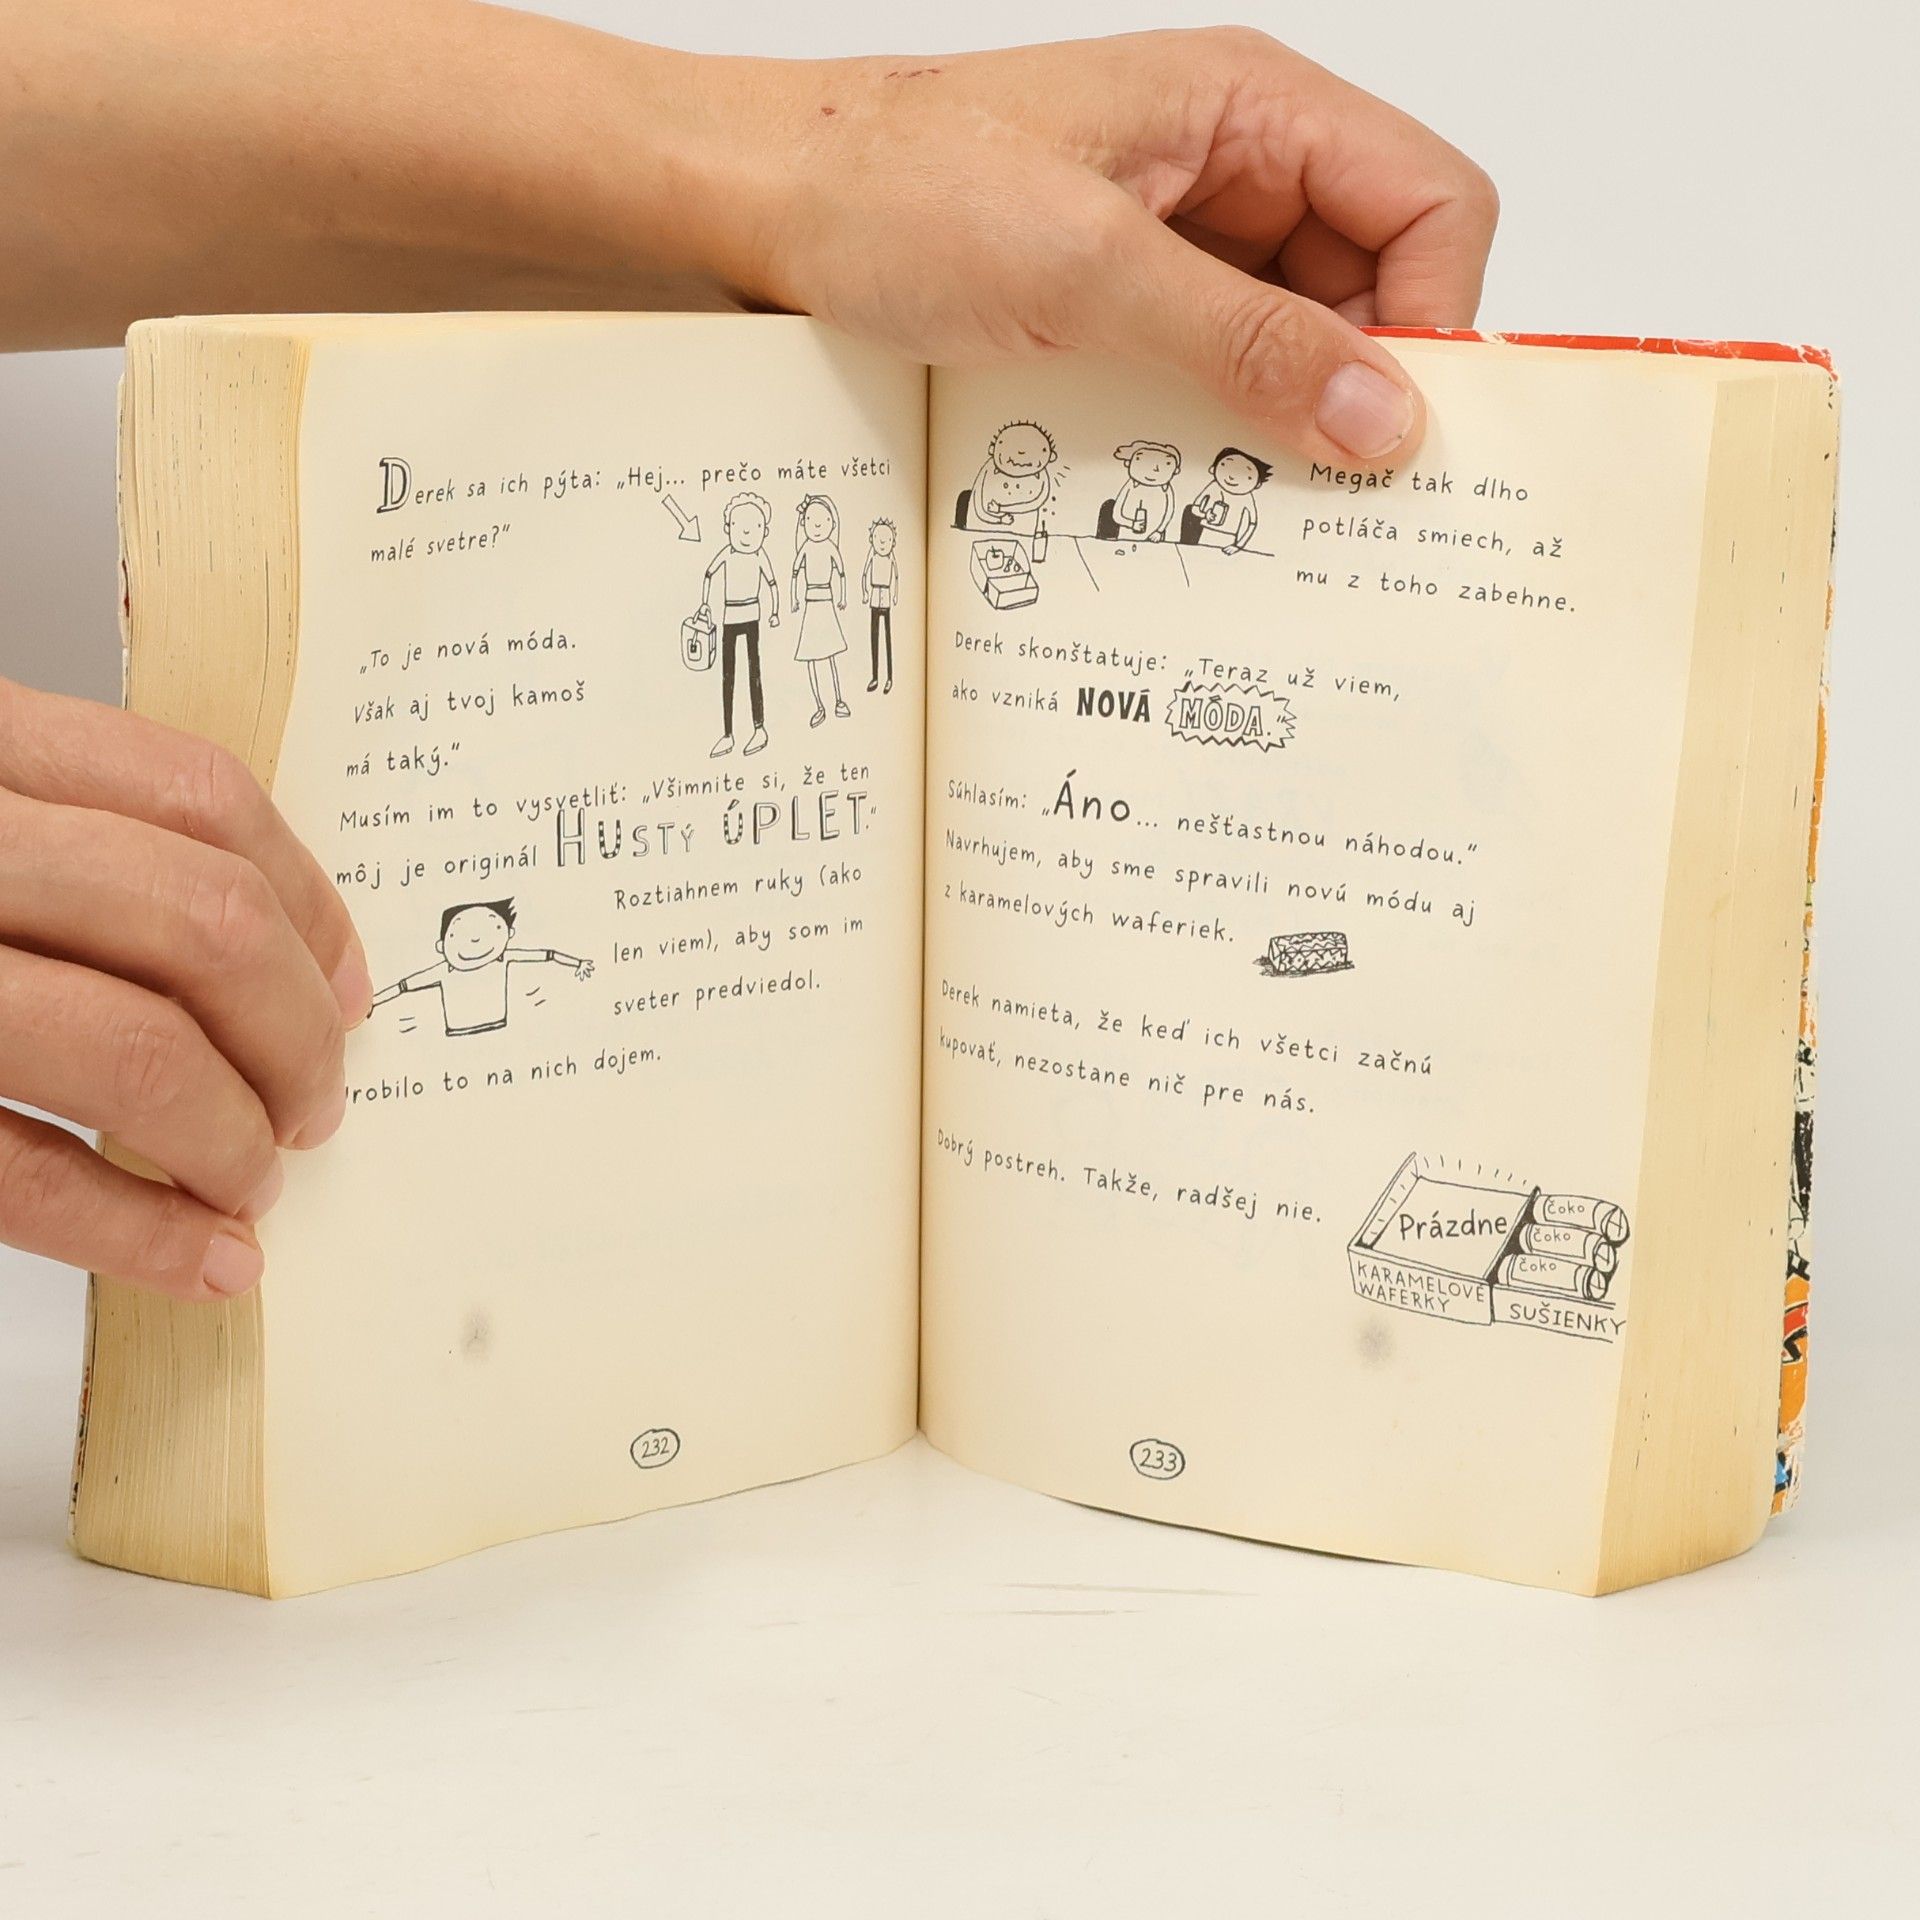 Derek sa ich pýta: „Hej... prečo máte všetci
malé svetre?“
„To je nová móda.
Však aj tvoj kamoš
má taký.“
Musím im to vysvetliť: „Všimnite si, že ten
môj je originál HUSTÝ ÚPLET.“
Roztiahnem ruky (ako
len viem), aby som im
sveter predviedol.
Urobilo to na nich dojem.
232
Megáč tak dlho
potláča smiech, až
mu z toho zabehne.
Derek skonštatuje: „Teraz už viem,
ako vzniká NOVÁ MÓDA.“
Súhlasím: „Áno... nešťastnou náhodou.“
Navrhujem, aby sme spravili novú módu aj
z karamelových waferiek.
Derek namieta, že keď ich všetci začnú
kupovať, nezostane nič pre nás.
Dobrý postreh. Takže, radšej nie.
Prázdne
čoko
čoko
čoko
KARAMELOVÉ
WAFERKY
SUŠIENKY
233